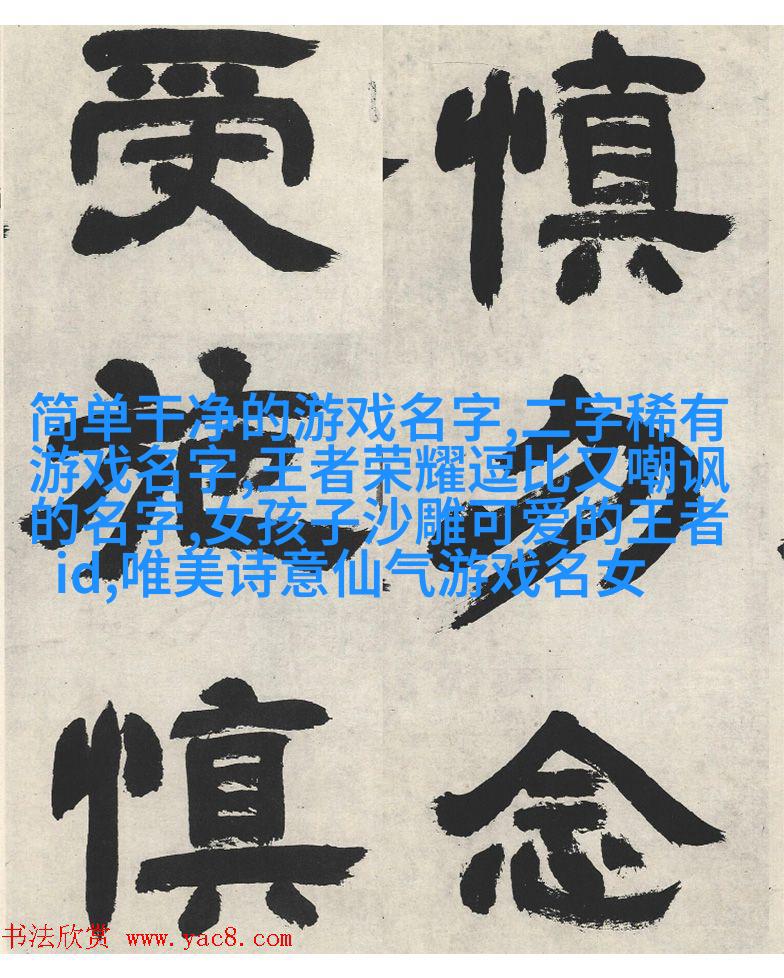 慎勿念
受施慎
简单干净的游戏名字,二字稀有
游戏名字,王者荣耀逗比又嘲讽
的名字,女孩子沙雕可爱的王者
id,唯美诗意仙气游戏名女
书法欣赏 www.yac8.com